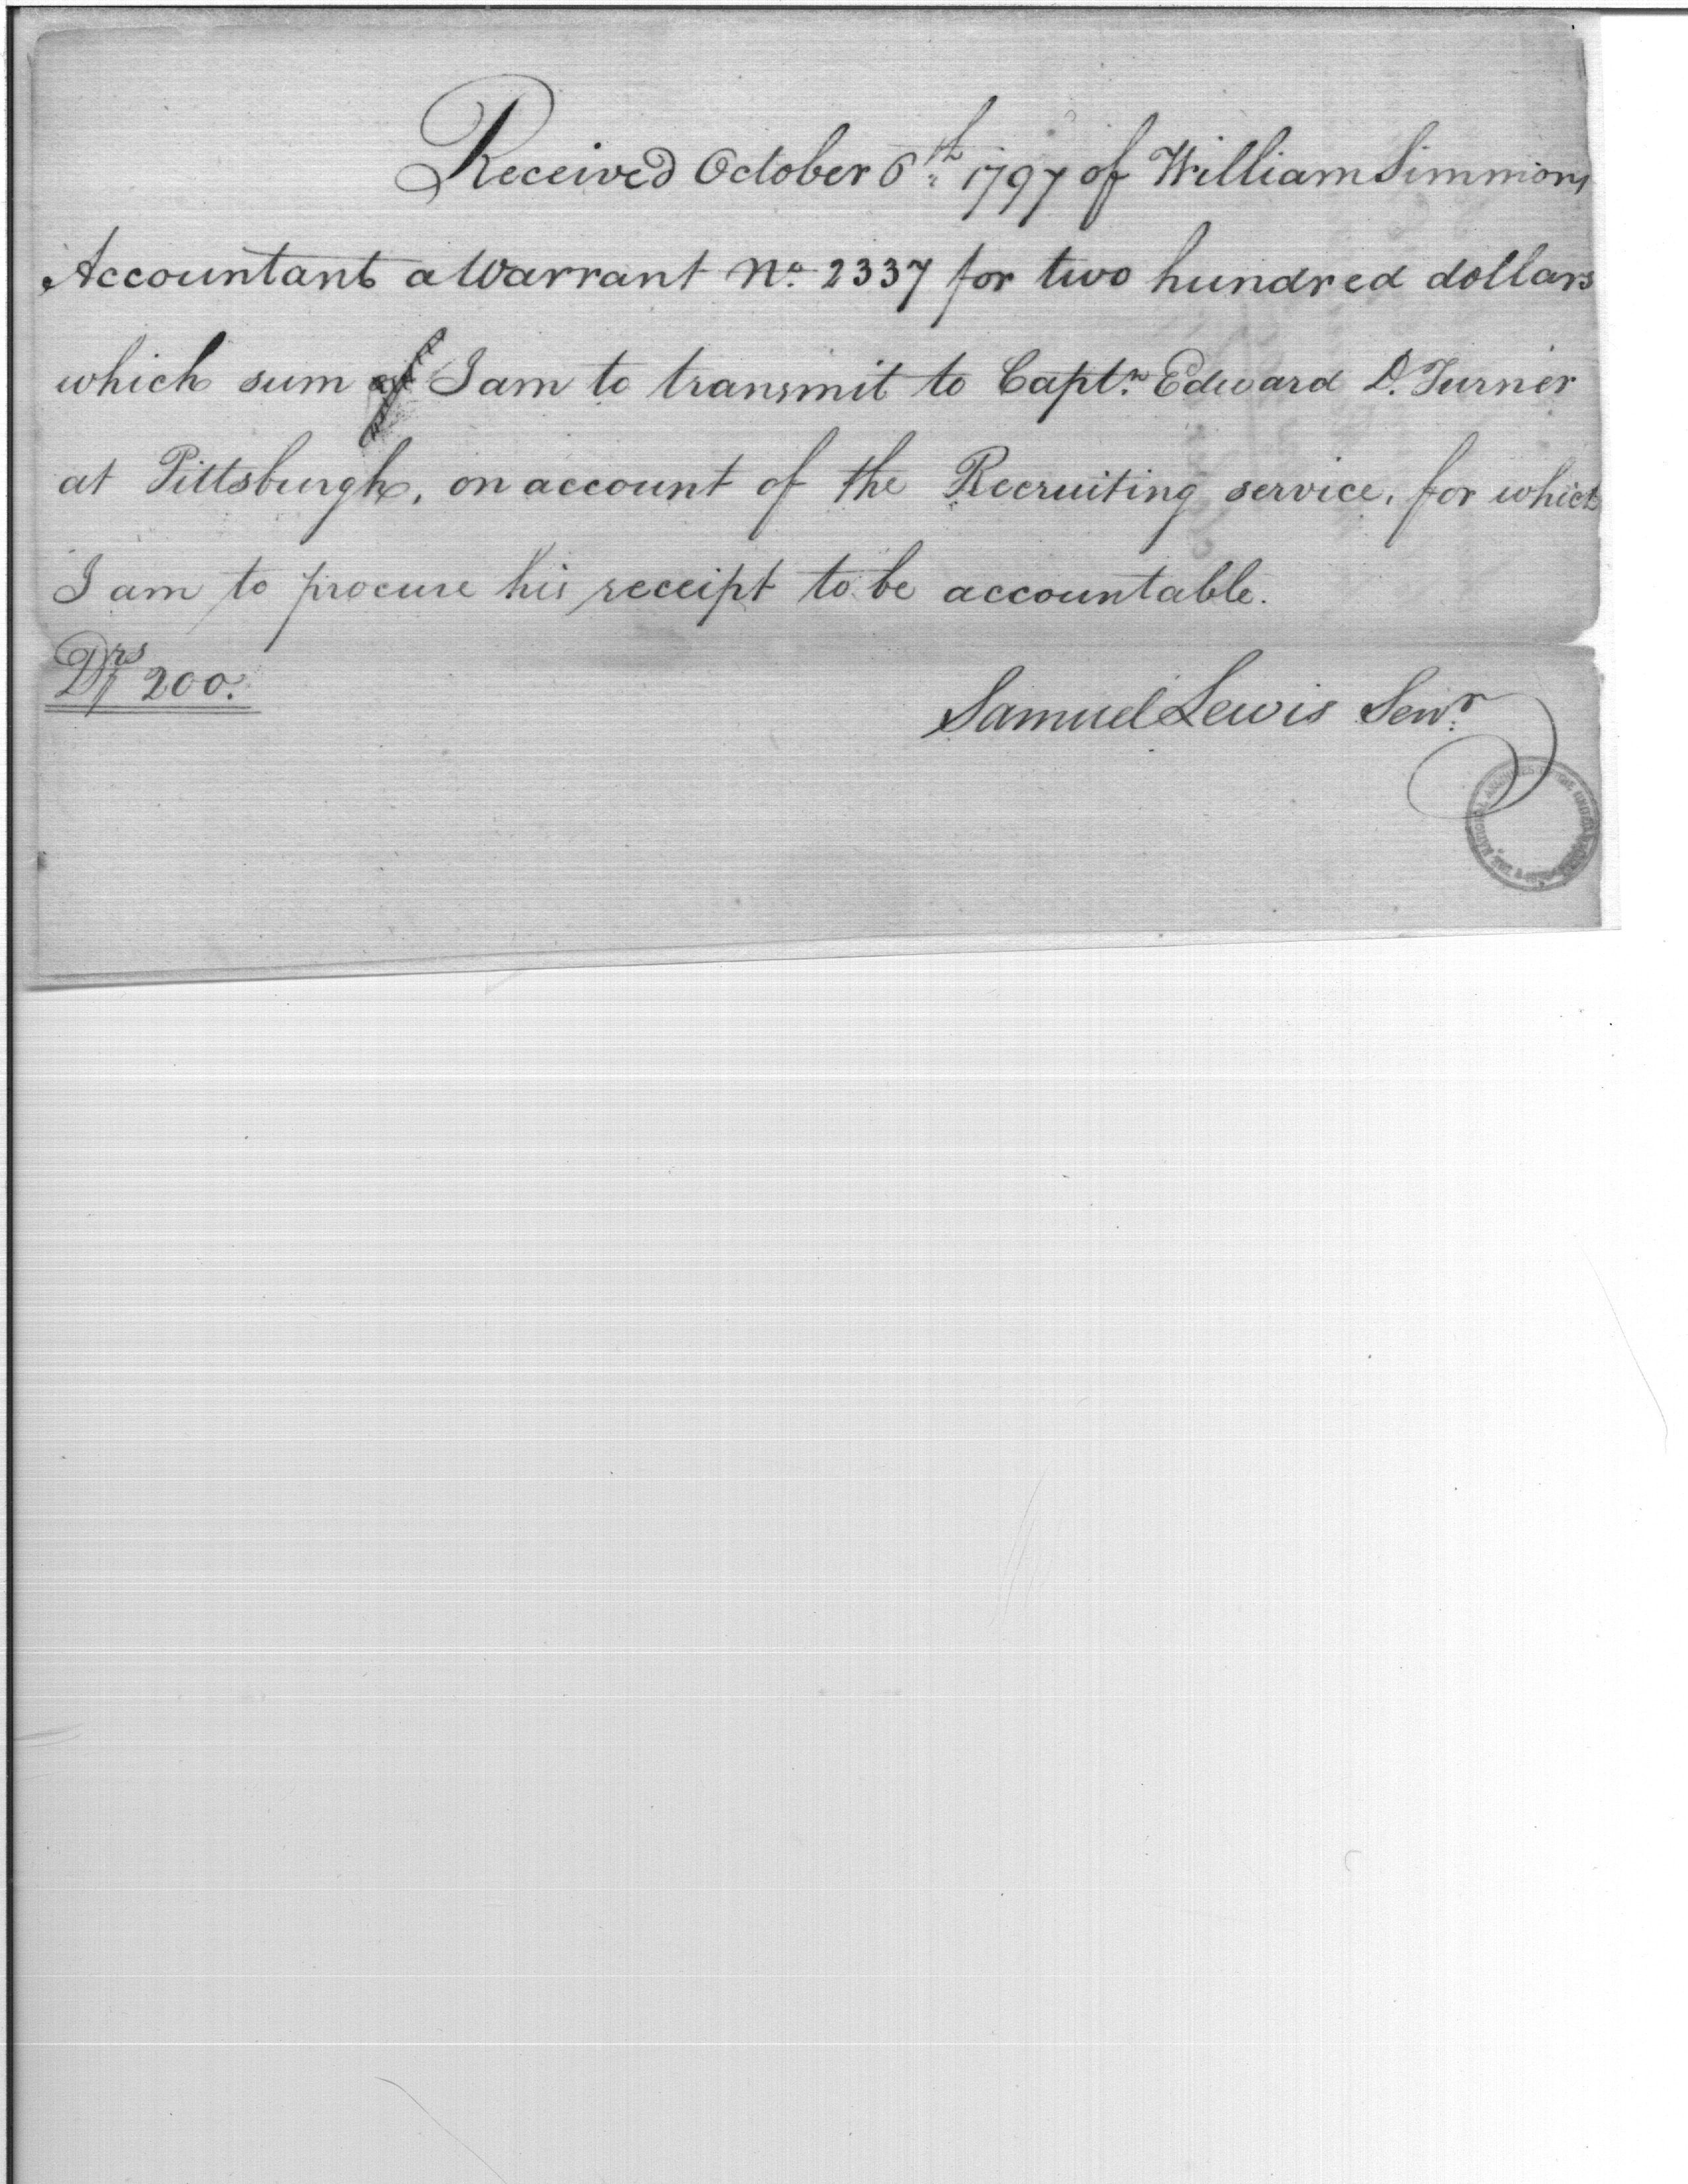 Received October 6th 1797 of William Simmons
Accountant a Warrant No. 2337 for two hundred dollars
which sum of I am to transmit to Captn. Edward D. Turner
at Pittsburgh, on account of the Recruiting service, for which
I am to procure his receipt to be accountable.
Drs 200.
Samuel Lewis Senr.
THE NATIONAL ARCHIVES OF THE UNITED STATES